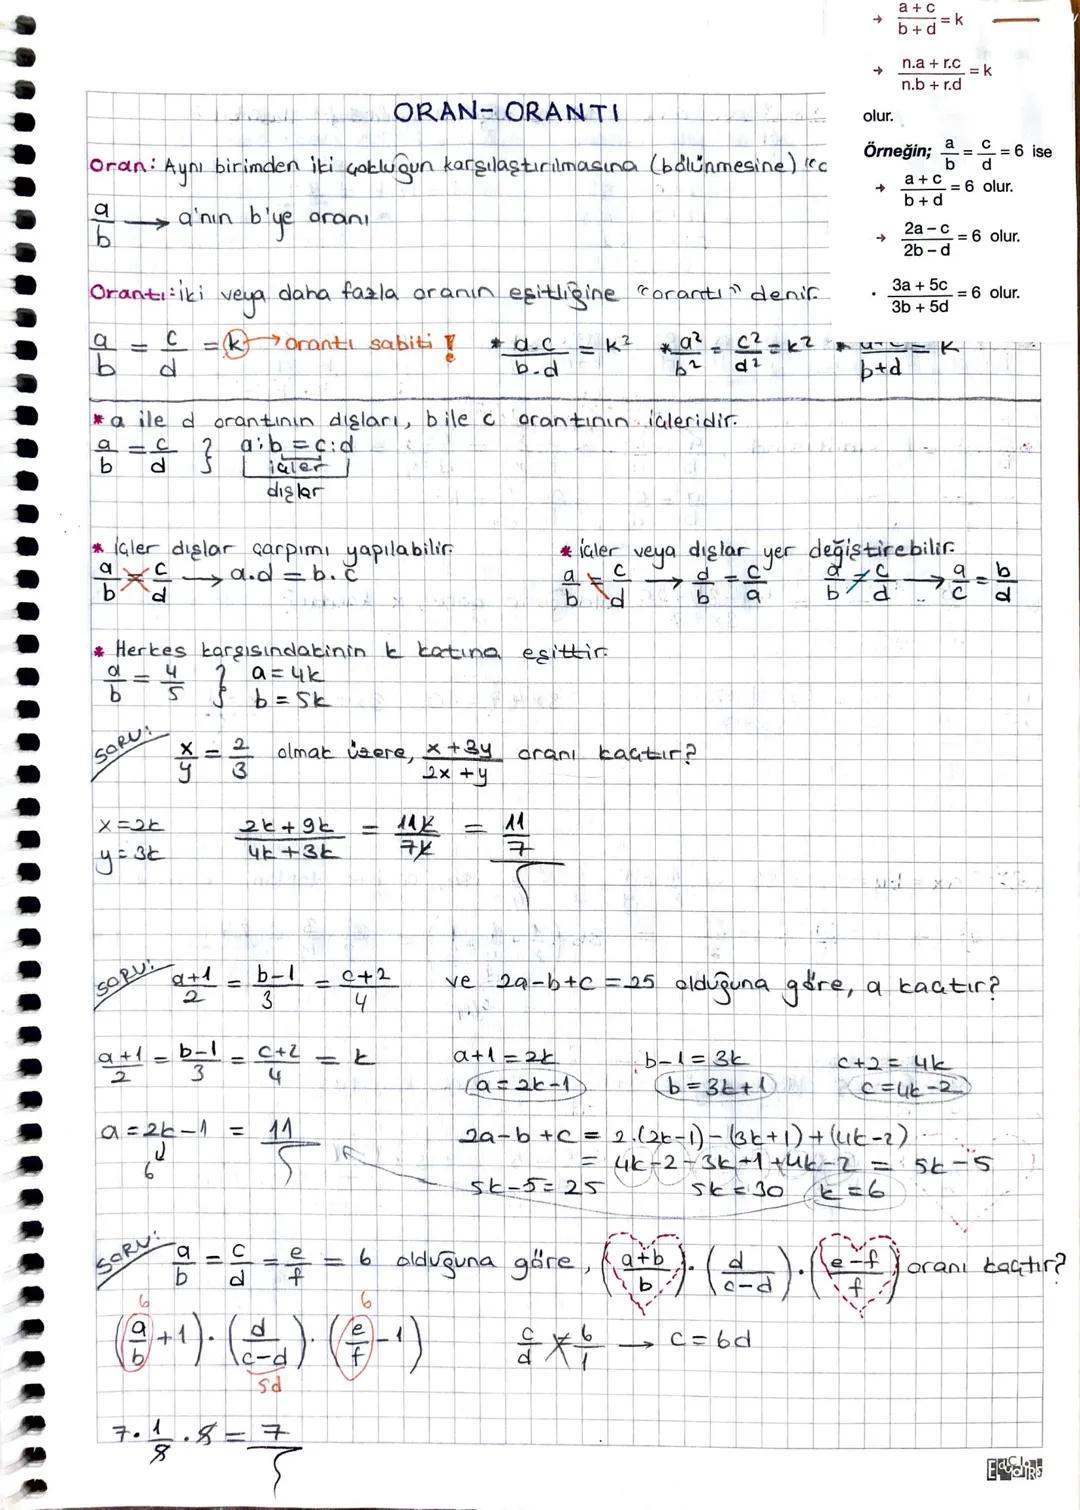 → a + c / b + d = k
→ n.a + r.c / n.b + r.d = k
olur.
Örneğin; a/b = c/d = 6 ise
→ a + c / b + d = 6 olur.
→ 2a – c / 2b – d = 6 olur.
· 3a + 5c / 3b + 5d = 6 olur.
ORAN- ORANTI
Oran: Aynı birimden iki çokluğun karşılaştırılmasına (bölünmesine)
a/b → a'nın b'ye oranı
Orantı: İki veya daha fazla oranın eşitliğine "orantı" denir.
a/b = c/d = k → orantı sabiti ! * a.c / b.d = k² * a²/b² = c²/d² = k² * / b+d = k
* a ile d orantının dışları, b ile c orantının içleridir.
a/b = c/d } a:b = c:d
içler
dışlar
* İçler dışlar çarpımı yapılabilir.
a/b = c/d → a.d = b.c
* içler veya dışlar yer değiştirebilir.
a/b = c/d → d/b = c/a a/b = c/d → a/c = b/d
* Herkes karşısındakinin k katına eşittir.
a/b = 4/5 } a = 4k
b = 5k
SORU: x/y = 2/3 olmak üzere, x+3y / 2x+y oranı kaçtır?
x = 2k
y = 3k
2k+9k / 4k+3k = 11k / 7k = 11/7
SORU: a+1 / 2 = b-1 / 3 = c+2 / 4 ve 2a-b+c = 25 olduğuna göre, a kaçtır?
a+1 / 2 = b-1 / 3 = c+2 / 4 = k
a+1 = 2k b-1 = 3k c+2 = 4k
a = 2k-1 b = 3k+1 c = 4k-2
a = 2k-1 = 11
6
2a-b+c = 2.(2k-1) - (3k+1) + (4k-2)
= 4k-2-3k+1+4k-2 = 5k-5
5k-5 = 25 5k = 30 k = 6
SORU: a/b = c/d = e/f = 6 olduğuna göre, (a+b / b) . (d / c-d) . (e-f / f) oranı kaçtır?
6 6
(a/b + 1) . (d / c-d) . (e/f - 1) c/d = 6/1 → c = 6d
5d
7 . 1/5 . 5 = 7